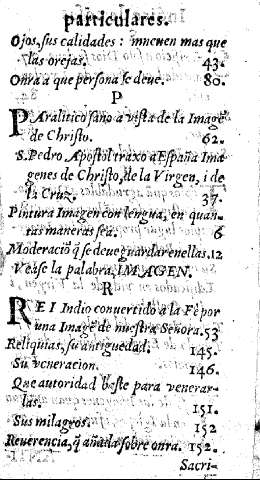 particulares.
Ojos, sus calidades: mueuen mas que
las orejas. 43.
Onra a que persona se deue. 80.
P
PAralitico sano a vista de la Imagē
de Christo. 62.
S. Pedro Apostol traxo a España Ima
genes de Christo, de la Virgen, i de
la Cruz. 37.
Pintura Imagen con lengua, en quan-
tas maneras sea. 6
Moderaciō q̄ se deue guardar en ellas. 12
Vease la palabra, IMAGEN.
R
REI Indio conuertido a la Fè por
una Imagē de nuestra Señora. 53
Reliquias, su antiguedad. 145.
Su veneracion. 146.
Que autoridad beste para venerar-
las. 151.
Sus milagros. 152
Reuerencia, q̄ añada sobre onra. 152.
Sacri-